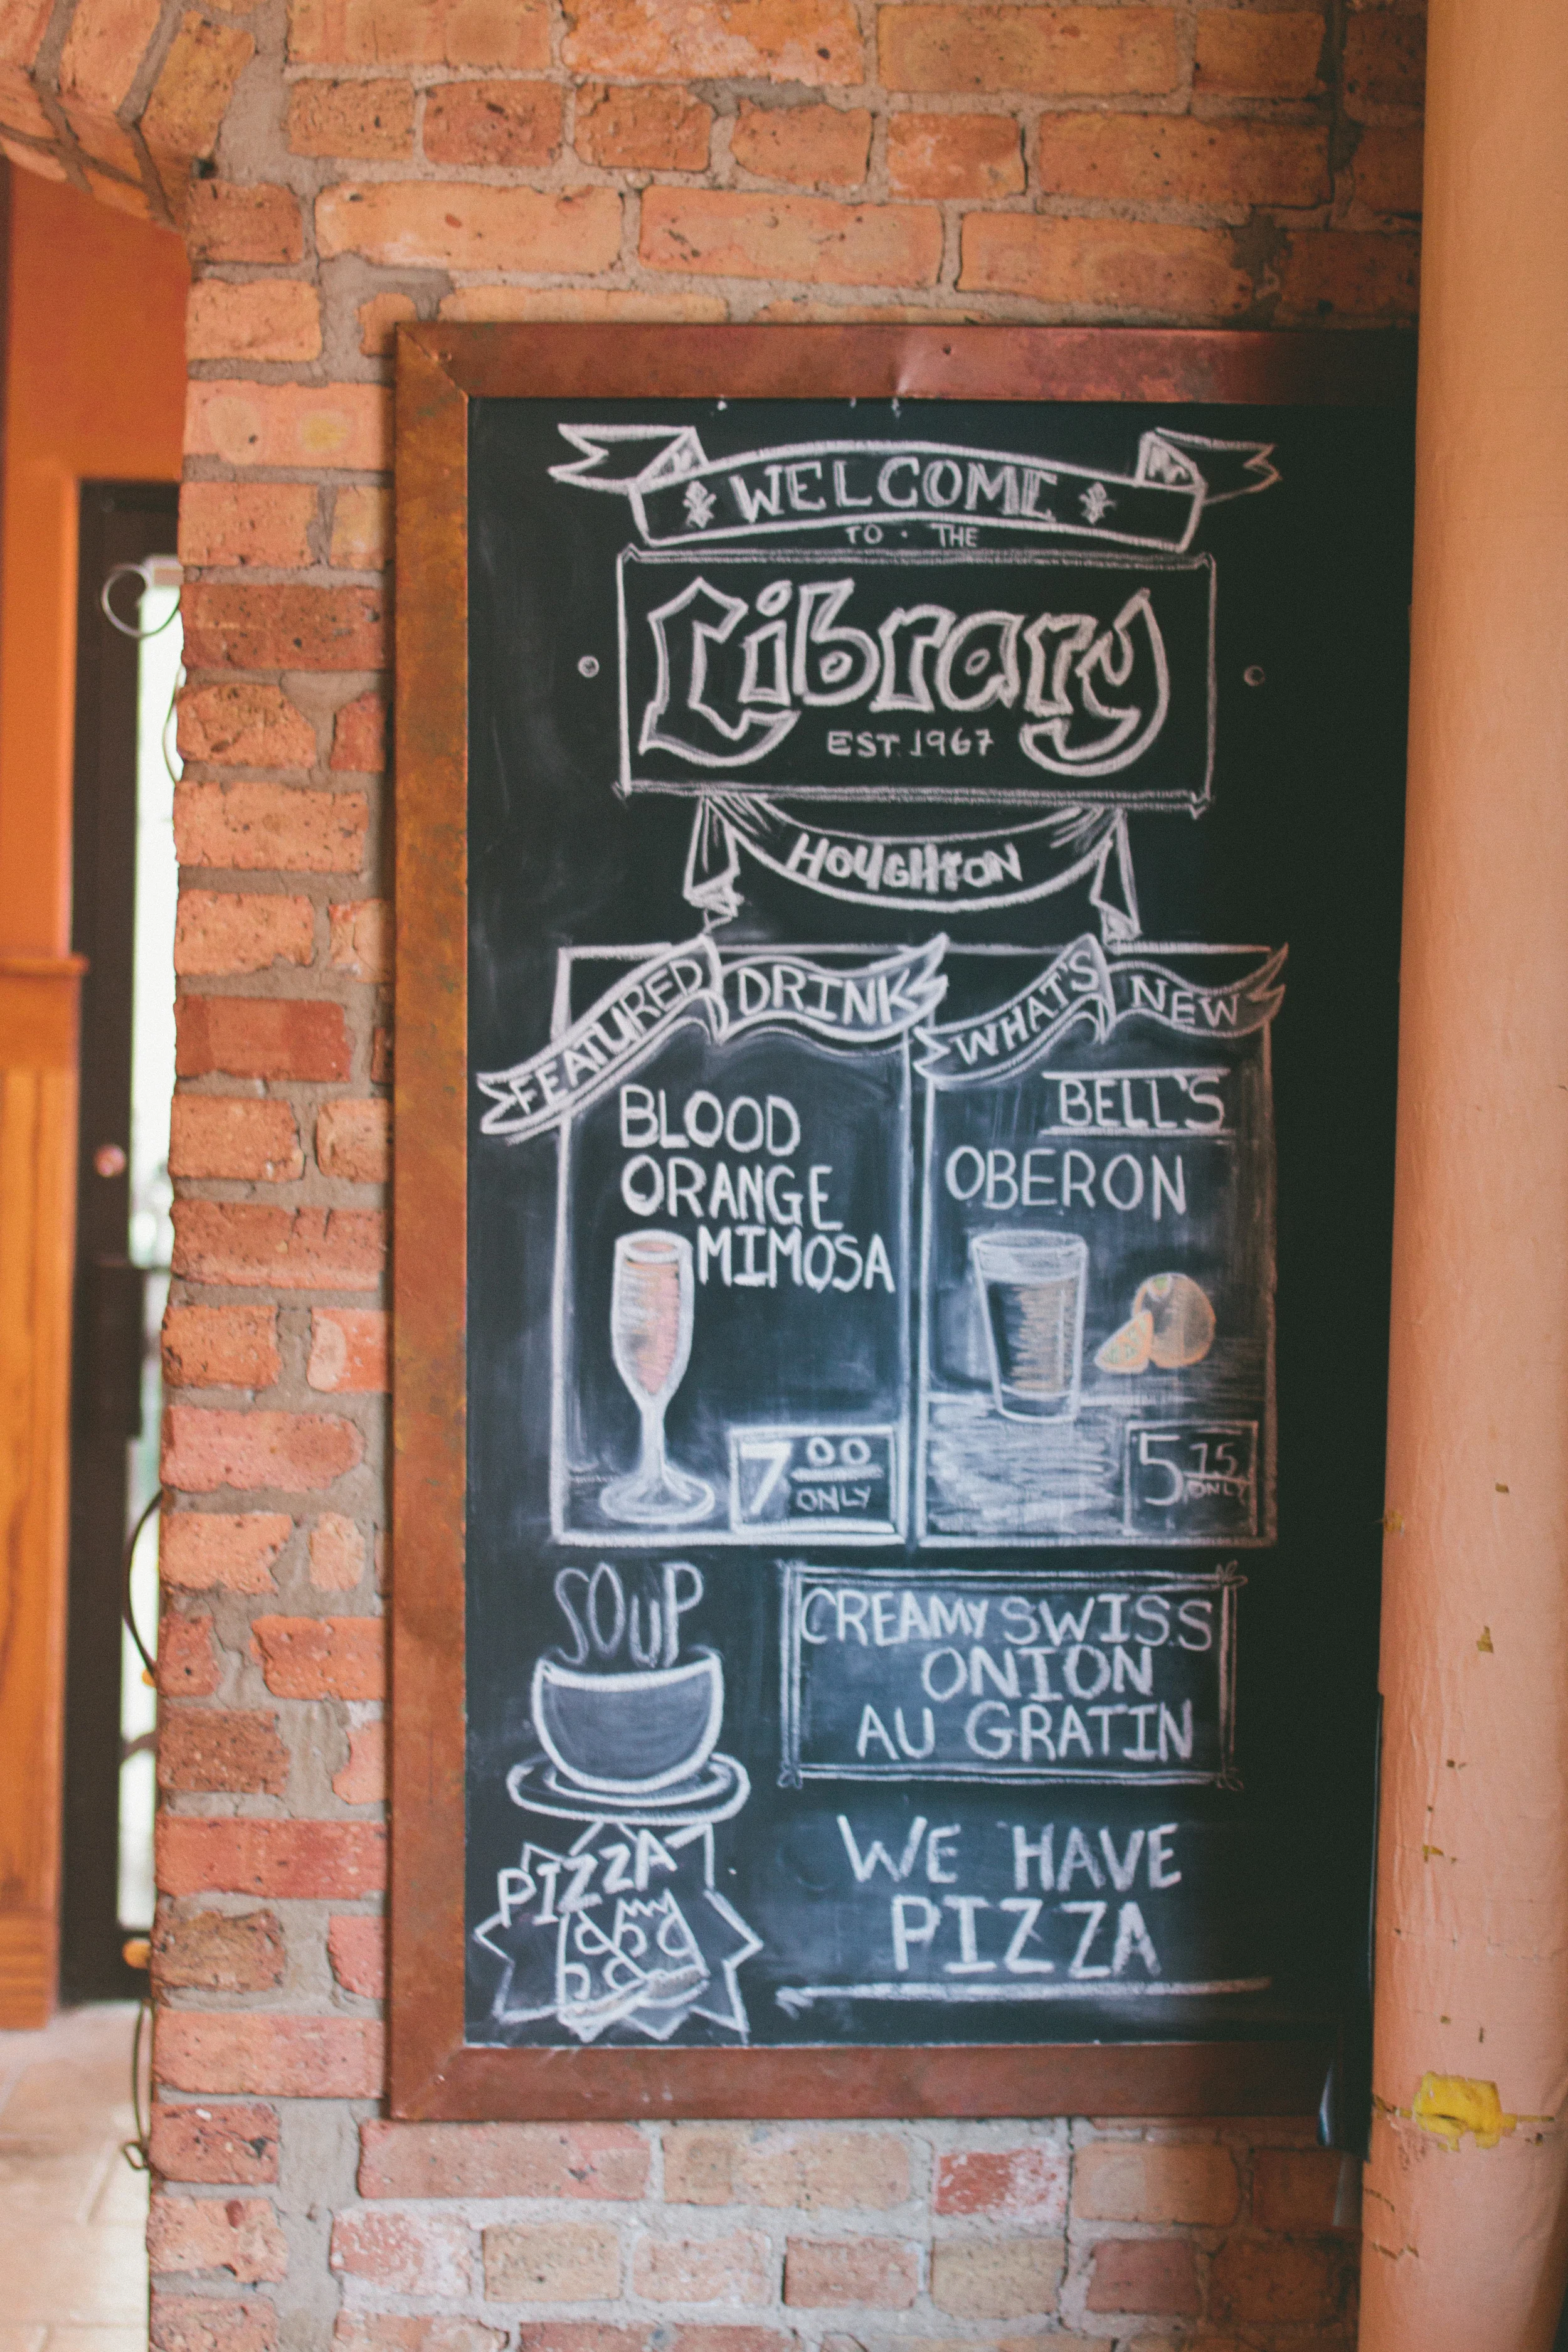 WELCOME
TO · THE
Library
EST. 1967
HOUGHTON
FEATURED DRINK
BLOOD
ORANGE
MIMOSA
7 00
ONLY
WHAT'S NEW
BELL'S
OBERON
5 75
ONLY
SOUP
CREAMY SWISS
ONION
AU GRATIN
PIZZA
WE HAVE
PIZZA